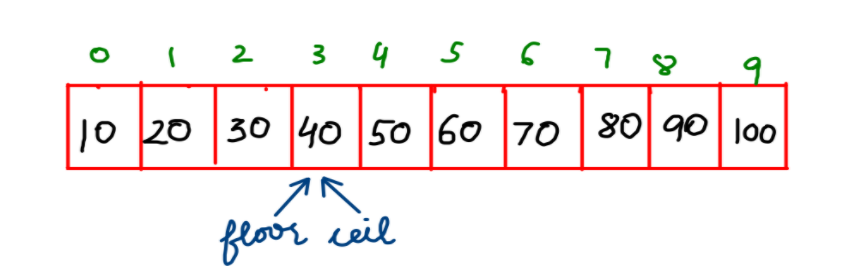 0 1 2 3 4 5 6 7 8 9
10 20 30 40 50 60 70 80 90 100
floor ceil